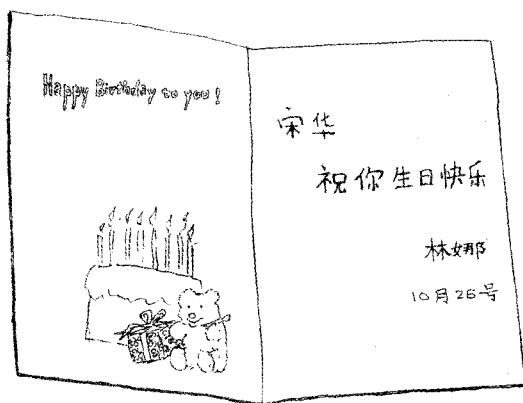 Happy Birthday to you!
宋华
祝你生日快乐
林娜
10月26号